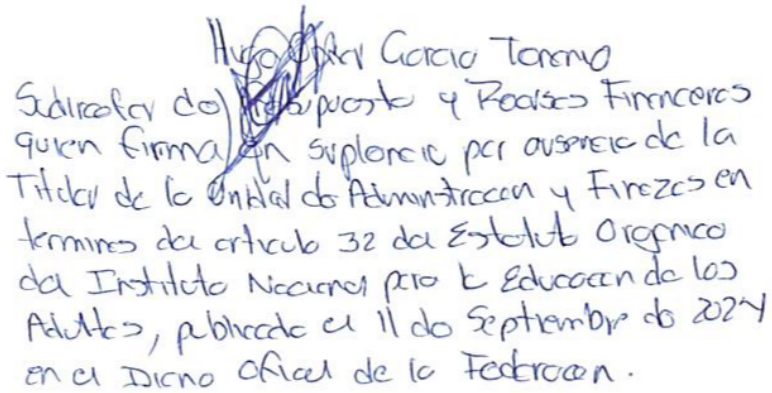 Hugo García Toreno
Subdirector de Presupuesto y Recursos Financieros
quien firma en suplencia por ausencia de la
Titular de la Unidad de Administración y Finazas en
terminos del articulo 32 del Estatuto Organico
del Instituto Nacional para la Educacion de los
Adultos, publicado el 11 de Septiembre de 2024
en el Diario Oficial de la Federacion.